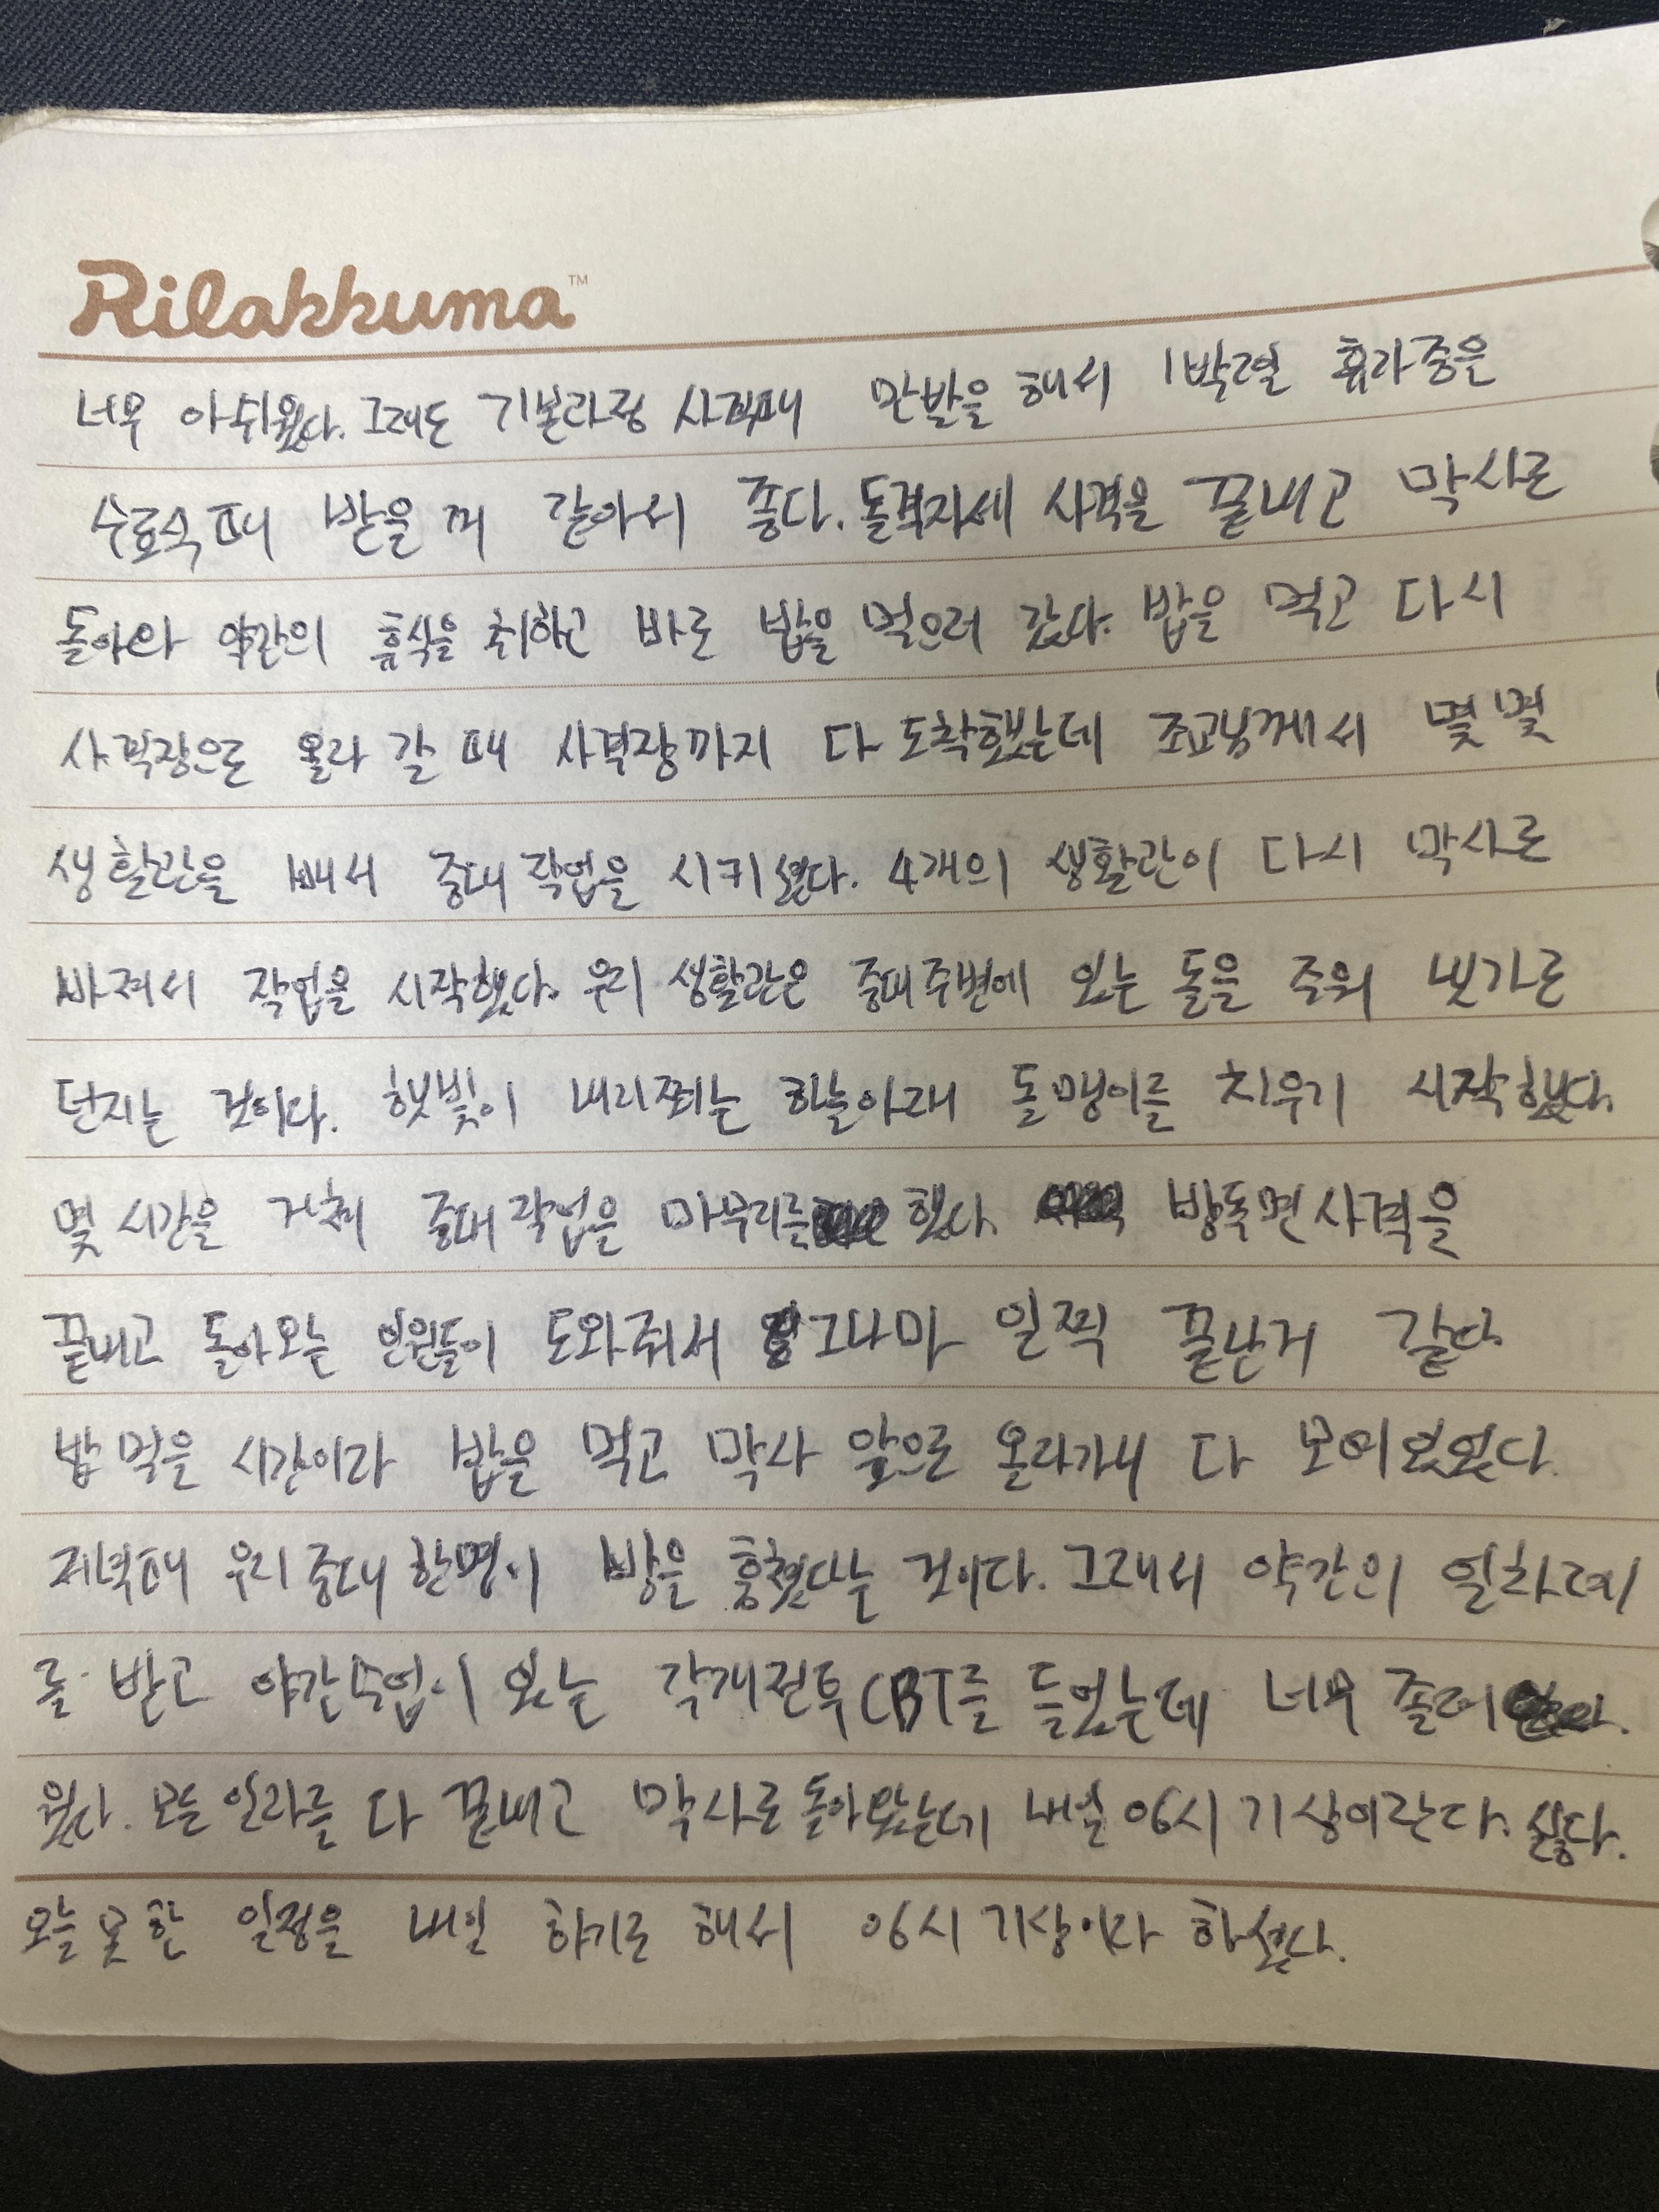 Rilakkuma™
너무 아쉬웠다. 그래도 기본과정 사격때 만발을 해서 1박2일 휴가증은
수료식때 받을 꺼 같아서 좋다. 돌격자세 사격을 끝내고 막사로
돌아와 약간의 휴식을 취하고 바로 밥을 먹으러 갔다. 밥을 먹고 다시
사격장으로 올라 갈 때 사격장까지 다 도착했는데 조교님께서 몇몇
생활관을 빼서 중대 작업을 시키셨다. 4개의 생활관이 다시 막사로
빠져서 작업을 시작했다. 우리 생활관은 중대주변에 있는 돌을 주워 냇가로
던지는 것이다. 햇빛이 내리쬐는 하늘아래 돌맹이를 치우기 시작했다.
몇 시간을 거쳐 중대 작업을 마무리를 했다. 방독면사격을
끝내고 돌아오는 인원들이 도와줘서 그나마 일찍 끝난거 같다
밥 먹을 시간이라 밥을 먹고 막사 앞으로 올라가니 다 모여있었다.
저녁때 우리 중대 한명이 빵을 훔쳤다는 것이다. 그래서 약간의 얼차려
를 받고 야간수업이 있는 각개전투CBT를 들었는데 너무 졸려
웠다. 모든 일과를 다 끝내고 막사로 돌아왔는데 내일 06시 기상이란다. 싫다.
오늘 못 한 일정을 내일 하기로 해서 06시 기상이라 하셨다.